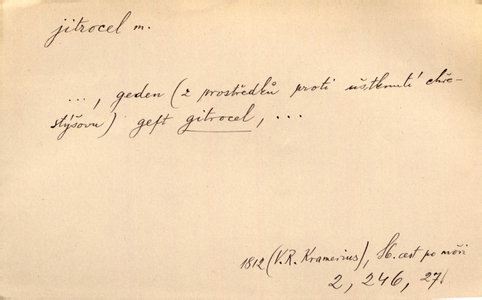 jitrocel m.
..., geden (z prostředků proti uštknutí chře-
stýšovu) gest gitrocel, ...
1812 (V. R. Kramerius), Sb. cest po moři
2, 246, 27